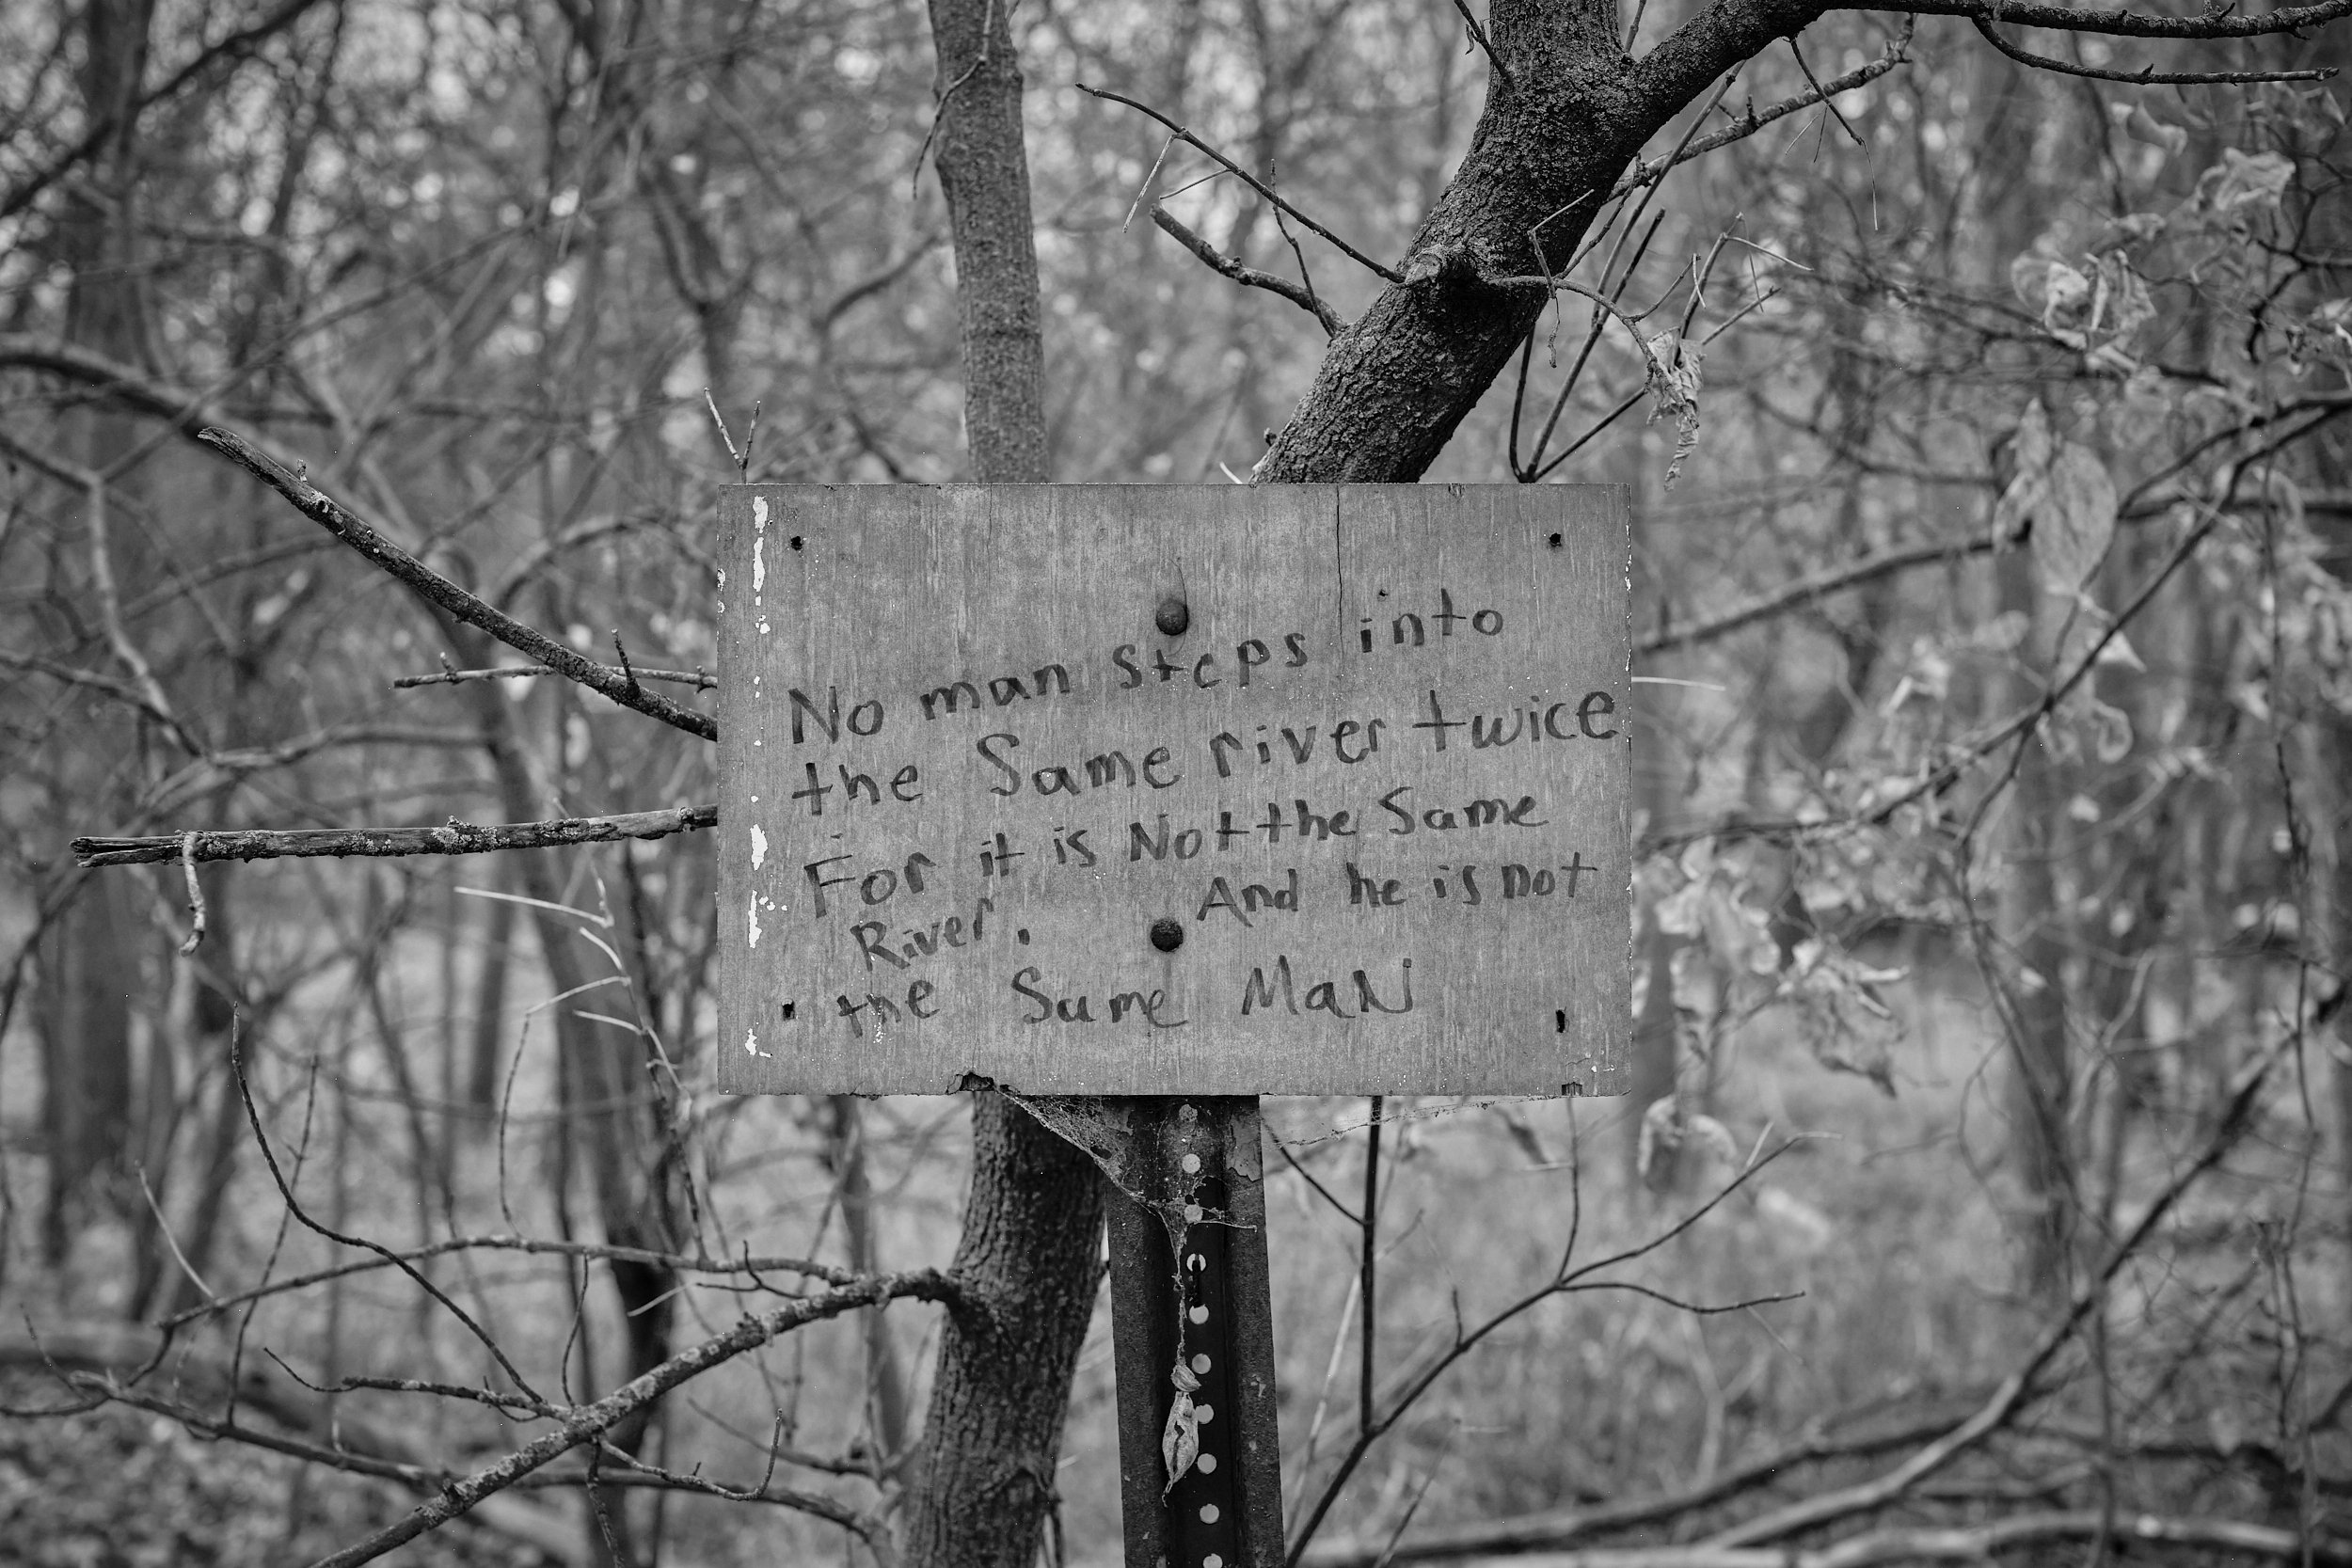 No man steps into
the Same river twice
For it is Not the Same
River. And he is not
the Same MaN